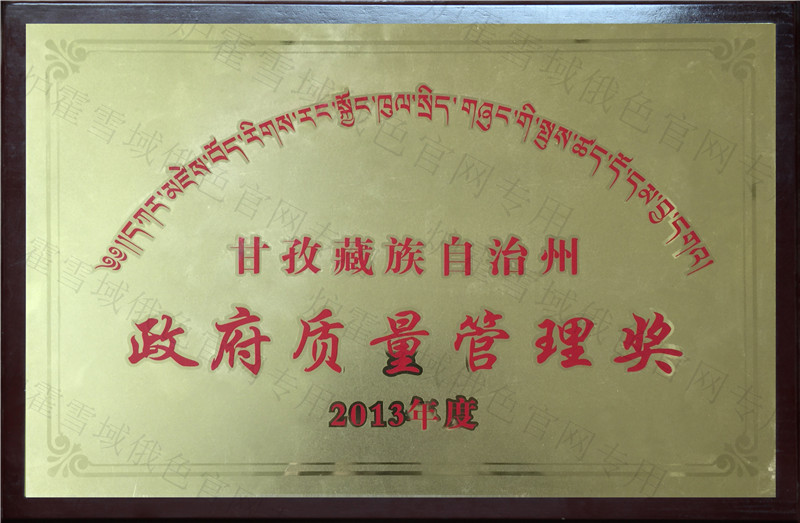 ༄༅།།དཀར་མཛེས་བོད་རིགས་རང་སྐྱོང་ཁུལ་སྲིད་གཞུང་གི་སྤུས་ཚད་དོ་དམ་བྱ་དགའ།
甘孜藏族自治州
政府质量管理奖
2013年度
炉霍雪域俄色官网专用